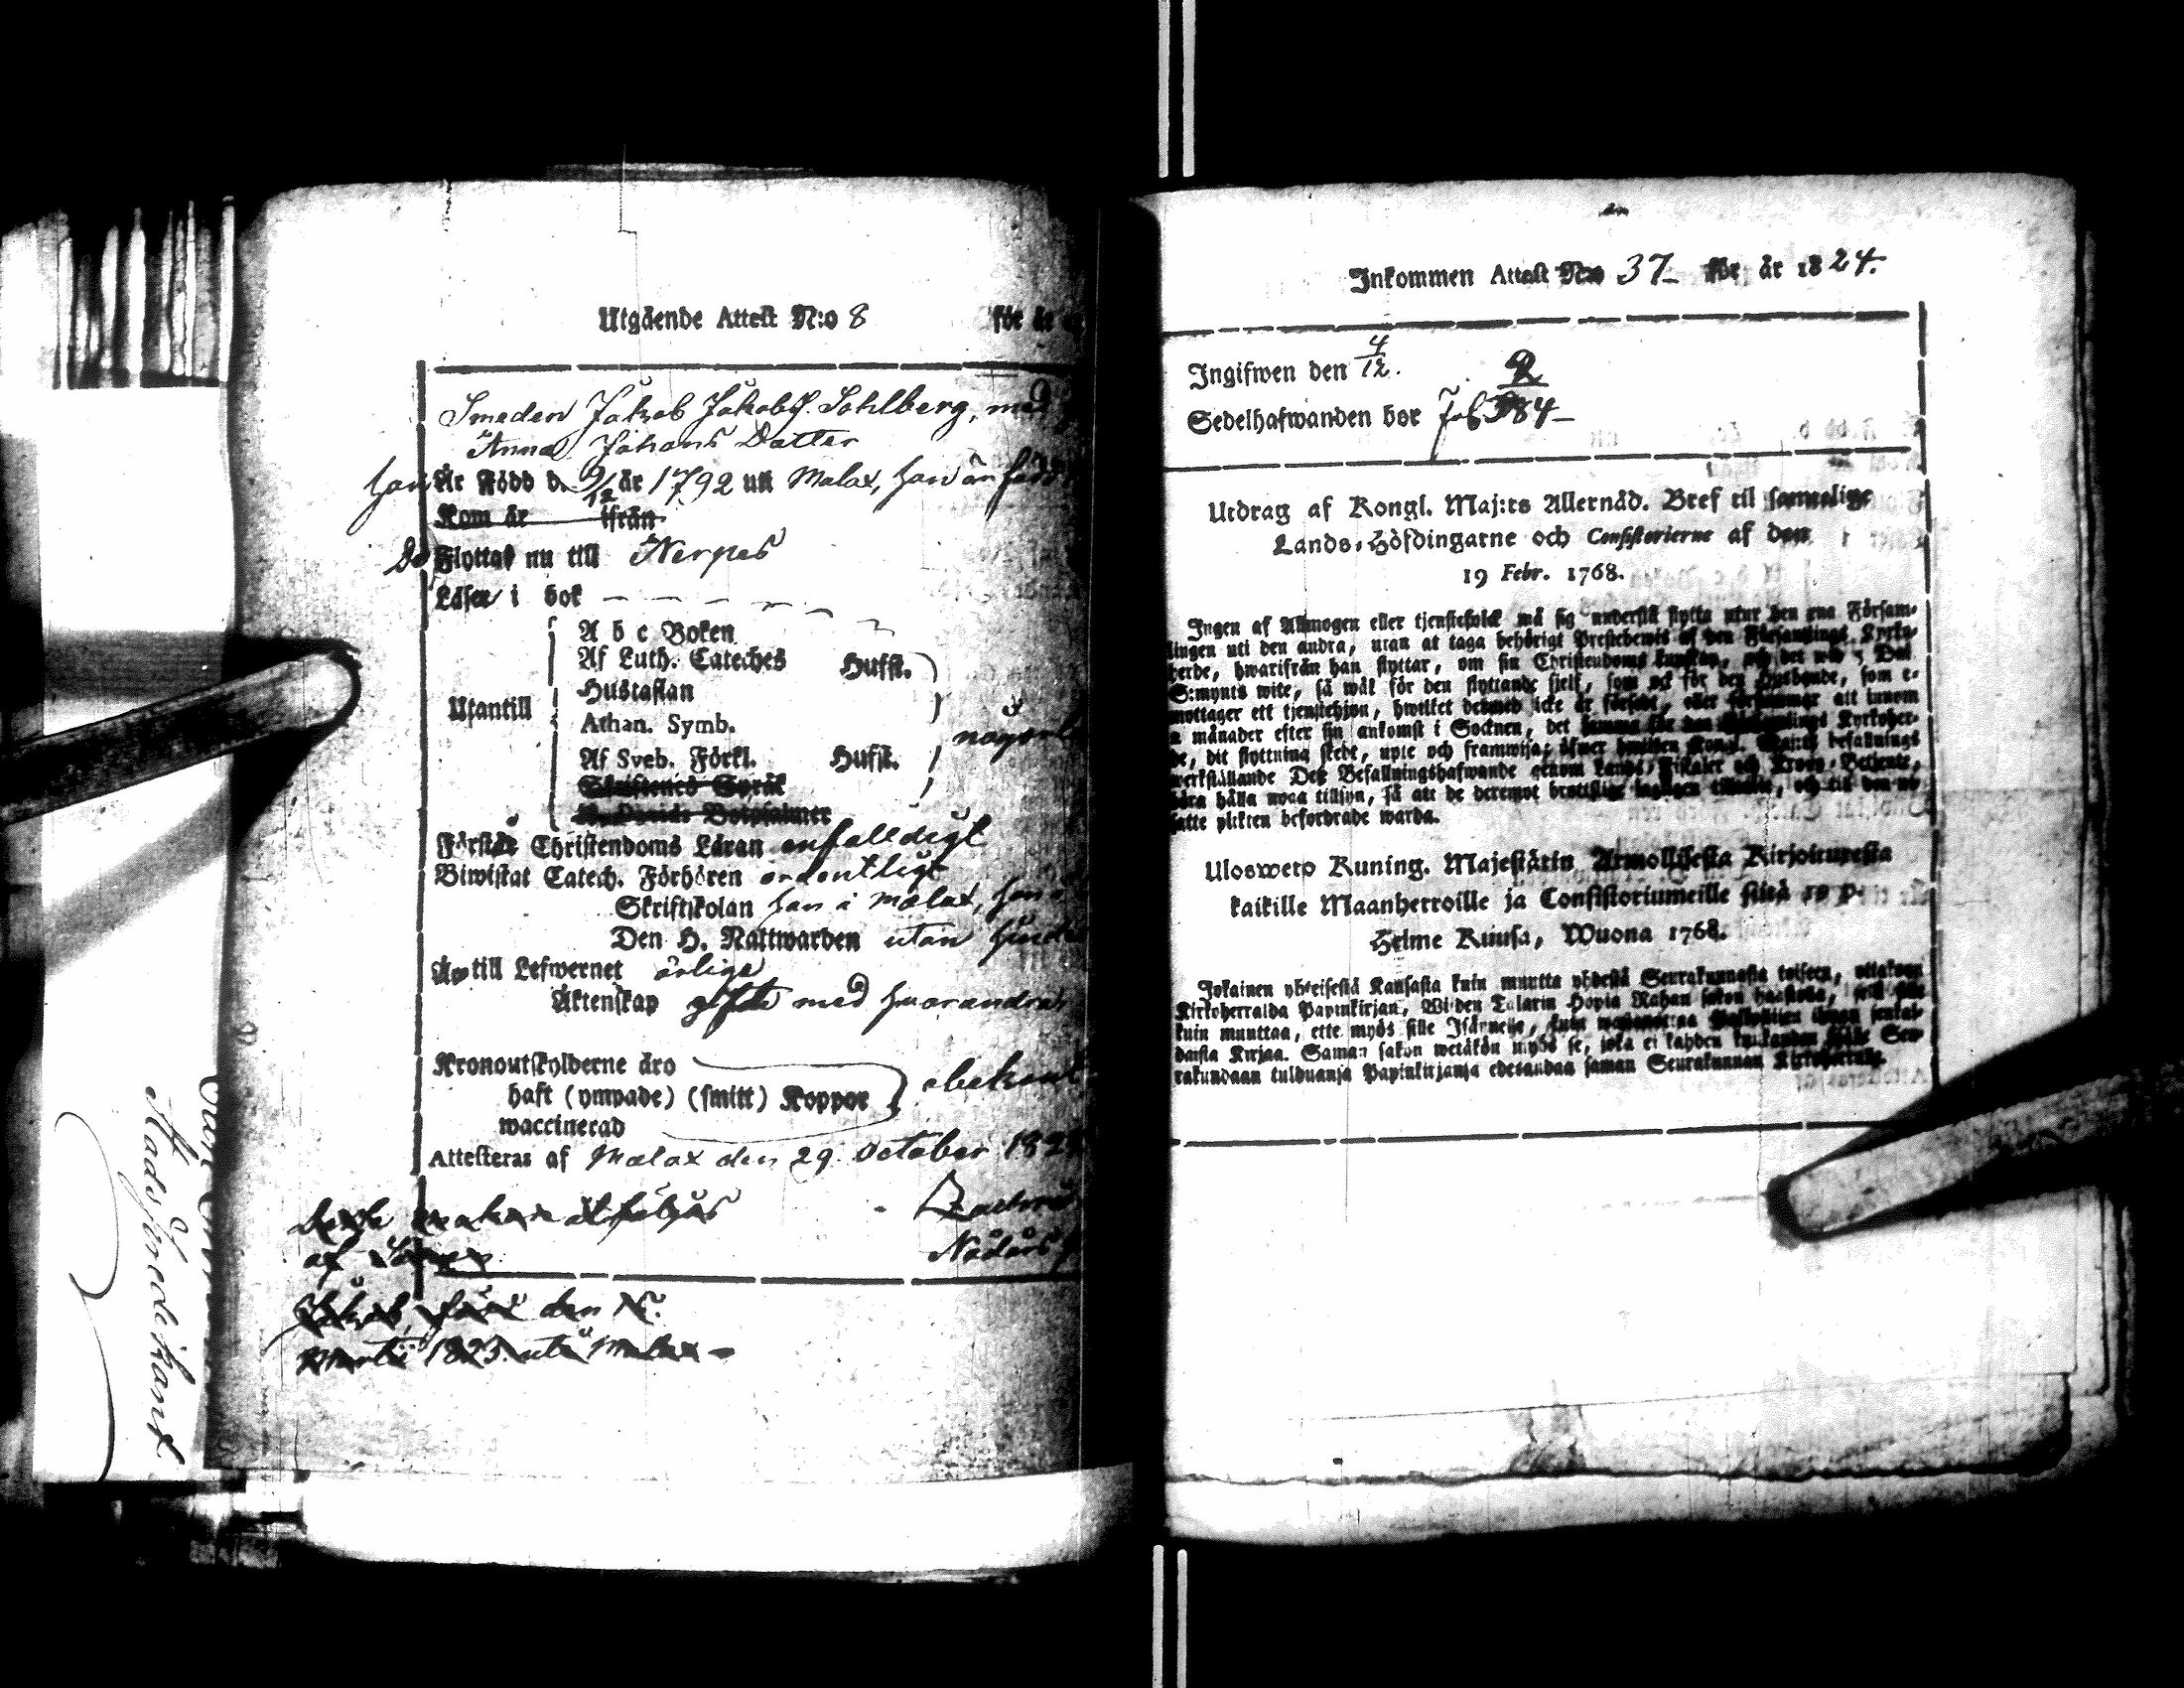 Utgående Attest N:o 8 för år
Smeden Jakob Jakobss. Sohlberg, med
Anna Johans Dotter
han Är Född d. 9/12 år 1792 uti Malax, hon är född
Kom år ifrån
De Flyttas nu till Nerpes
Läser i bok
A b c Boken
Af Luth. Cateches Husft.
Hustaflan
Utantill
Athan. Symb.
någorl
Af Sveb. Förkl. Husft.
Skriftenes Språk
K. Davids Botpsalmer
Förstår Christendoms Läran enfalldigt
Biwistat Catech. Förhören ordentligt
Skriftskolan han i Malax, hon
Den H. Nattwarden utan hinder
Är till Lefwernet ärliga
Äktenskap gifta med hvarandra
Kronoutskylderne äro
haft (ympade) (smitt) Koppor obekant
waccinerad
Attesteras af Malax den 29. October 182
af
Jakob, född den
Martii 1823. uti Malax
Stadsfiscalikans
Inkommen Attest N:o 37 för år 1824.
Ingifwen den 4/12.
Sedelhafwanden bor fol 384
Utdrag af Kongl. Maj:ts Allernåd. Bref til samtelige
Lands-Höfdingarne och Consistorierne af den
19 Febr. 1768.
Ingen af Allmogen eller tjenstefolck må sig understå flytta utur den ena Försam-
lingen uti den andra, utan at taga behörigt Prestebewis af den Församlings Kyrko-
herde, hwarifrån han flyttar, om sin Christendoms kunskap, och det wid 3 Dal.
S:mynts wite, så wäl för den flyttande sielf, som ock för den Husbonde, som e-
mottager ett tjenstehjon, hwilket dermed icke är försedt, eller försummar att innom
månader efter sin ankomst i Socknen, det samma för den Församlings Kyrkoher-
de, dit flyttning skedt, upte och framwisa; öfwer hwilken Kongl. Maj:ts befallnings
werkställande Des Befallningshafwande genom Lands-Fiskaler och Krono-Betjente,
böra hålla noga tillsyn, så att de deremot brottslige lagligen tilltalte, och til den ut-
satte plikten befordrade warda.
Uloswetp Kuning. Majestätin Armollisesta Kirjoituxesta
kaikille Maanherroille ja Consistoriumeille siitä 19 p.
Helme Kuusa, Wuona 1768.
Jokainen yhteisestä Kansasta kuin muutta yhdestä Seurakunnasta toiseen, ottakoon
Kirkoherralda Papinkirjan, Wiiden Talarin Hopia Rahan sakon haastolla, sekä sille
kuin muuttaa, ette myös sille Isännelle, kuin wastanottaa Palkollisen ilman senkal-
daista Kirjaa. Saman sakon wetäkön myös se, joka ei kahden kuukauden sisälle Seu-
rakundaan tulduansa Papinkirjansa edesandaa saman Seurakunnan Kirkoherralle.